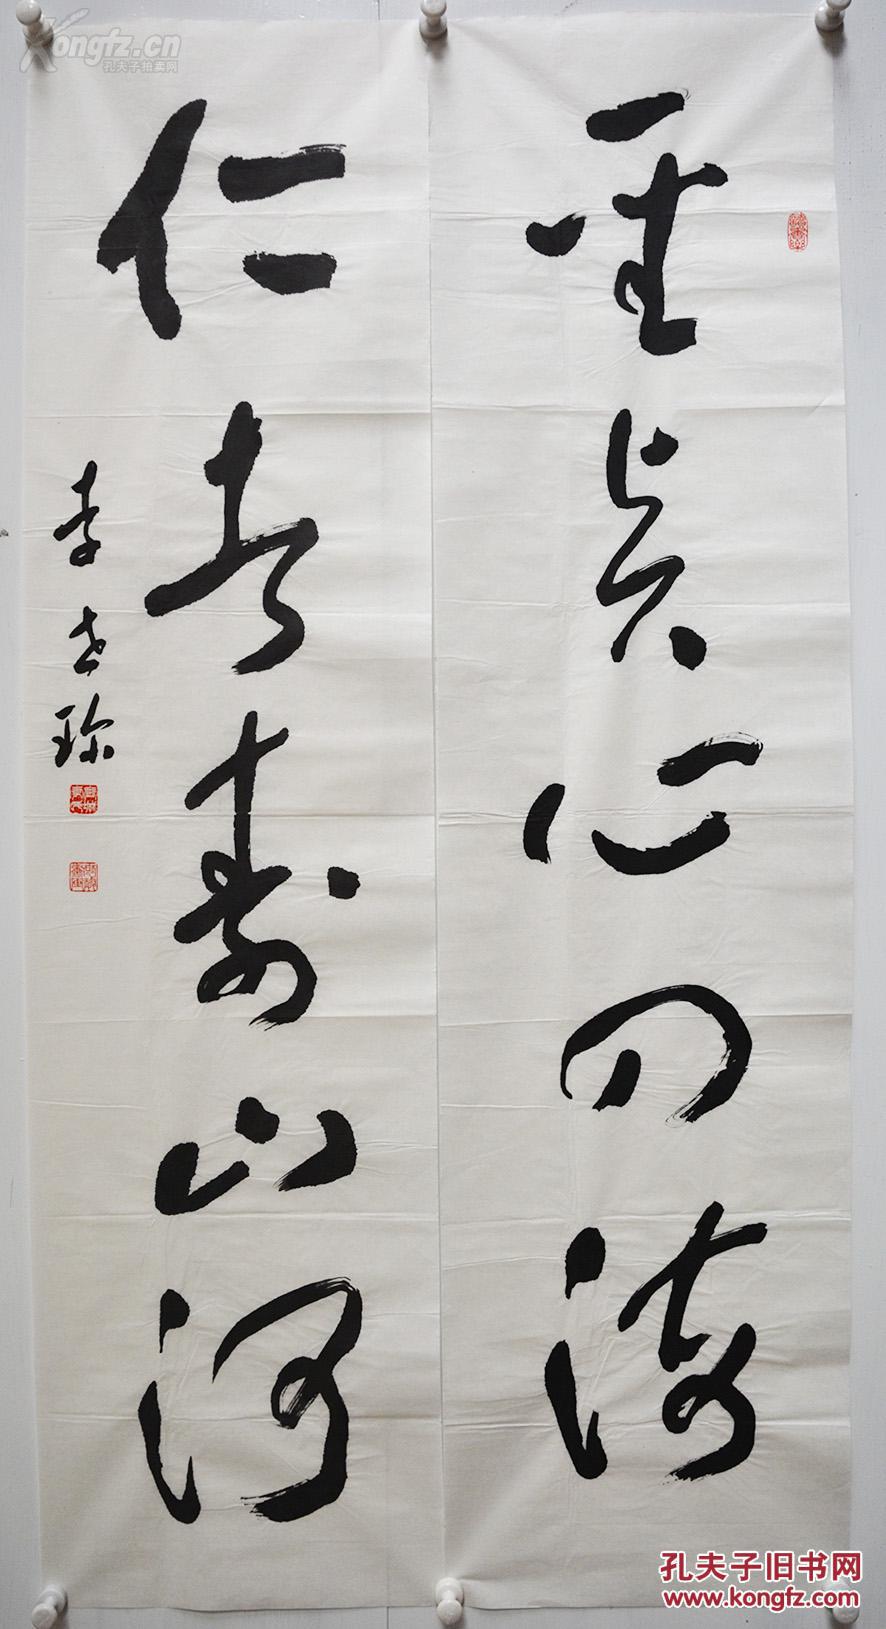 心四海
仁者壽山河
李世
Kongfz.cn
孔夫子拍卖网
孔夫子旧书网
www.kongfz.com